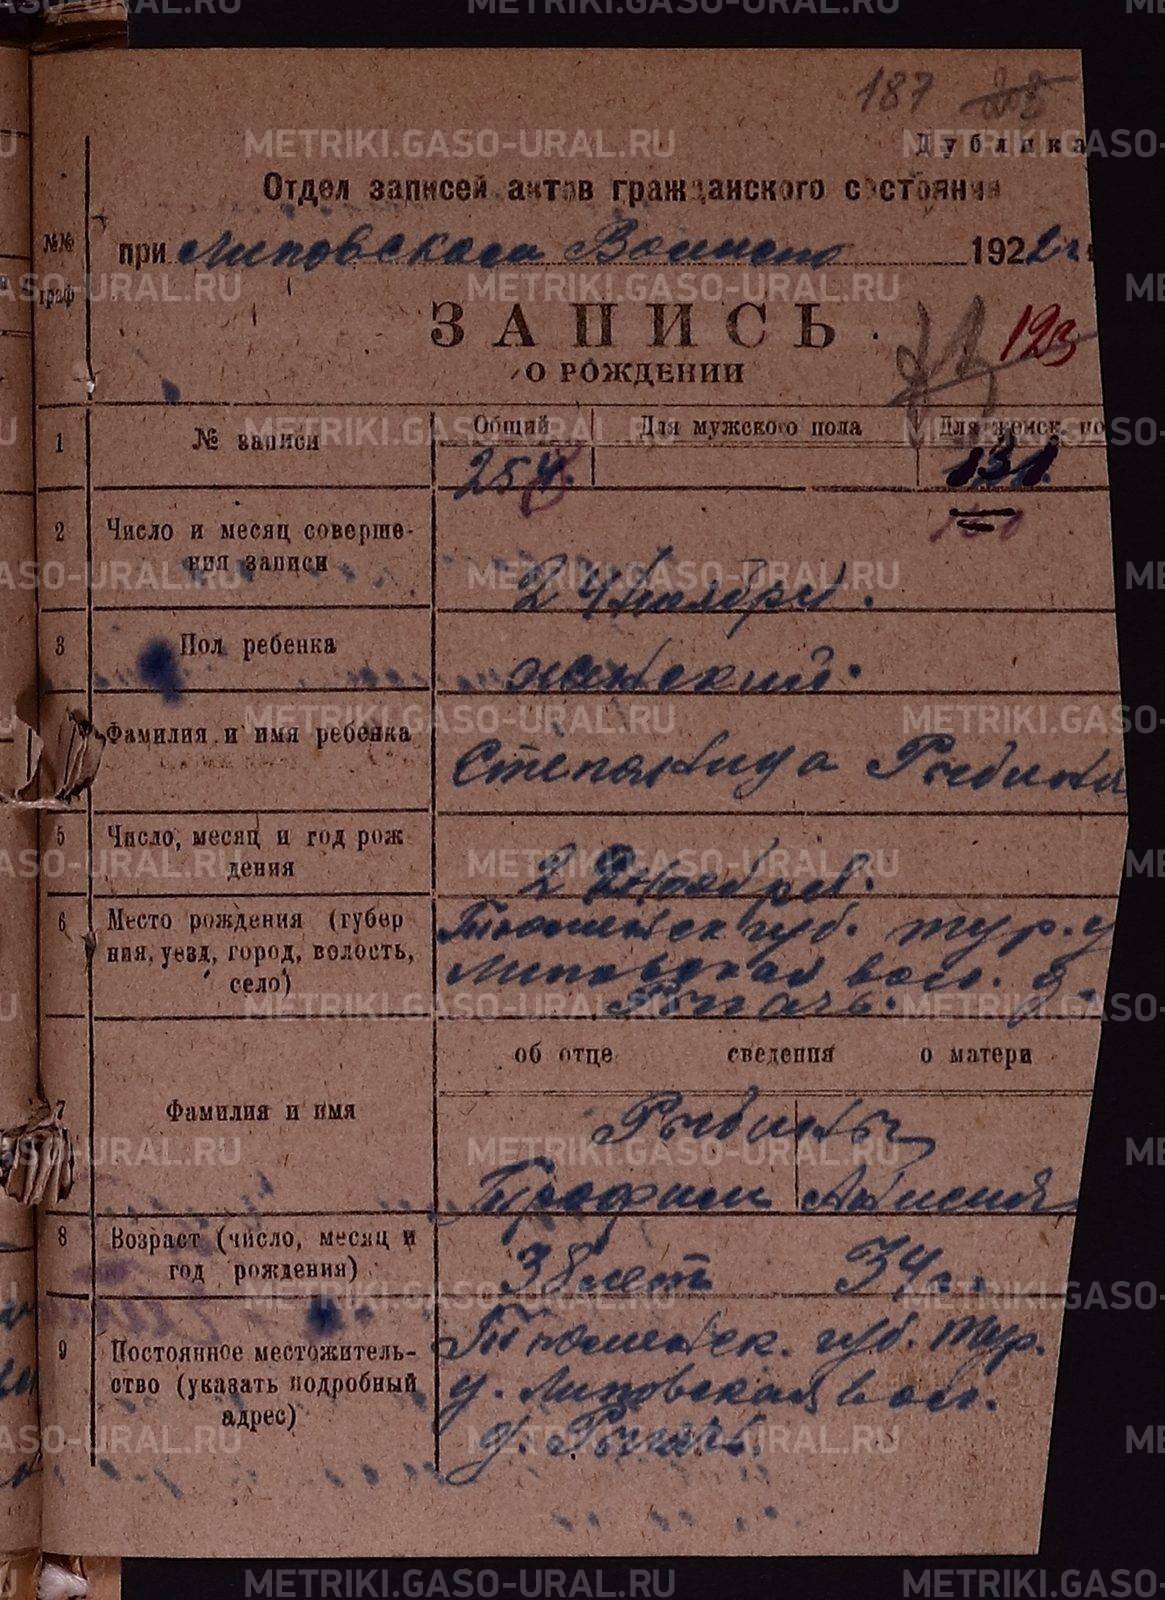 187 208
Дублика
Отдел записей актов гражданского состояния
№№ граф
при Липовском Волиспо 1922 г.
ЗАПИСЬ
123
О РОЖДЕНИИ
1 № записи Общий Для мужского пола Для женск. по
254. 131.
2 Число и месяц соверше-
ния записи
24 Ноября.
3 Пол ребенка
женский.
Фамилия и имя ребенка
Степанида Рыбина
5 Число, месяц и год рож
дения
2 Ноября.
6 Место рождения (губер
ния, уезд, город, волость,
село)
Тюменск губ. Тур. у
Липовская вол. д.
об отце сведения о матери
7 Фамилия и имя
Рыбины
Трофим Анисия
8 Возраст (число, месяц и
год рождения)
38 лет 34 г.
9 Постоянное местожитель-
ство (указать подробный
адрес)
Тюменск. губ. Тур.
у. Липовская вол.
д.
METRIKI.GASO-URAL.RU